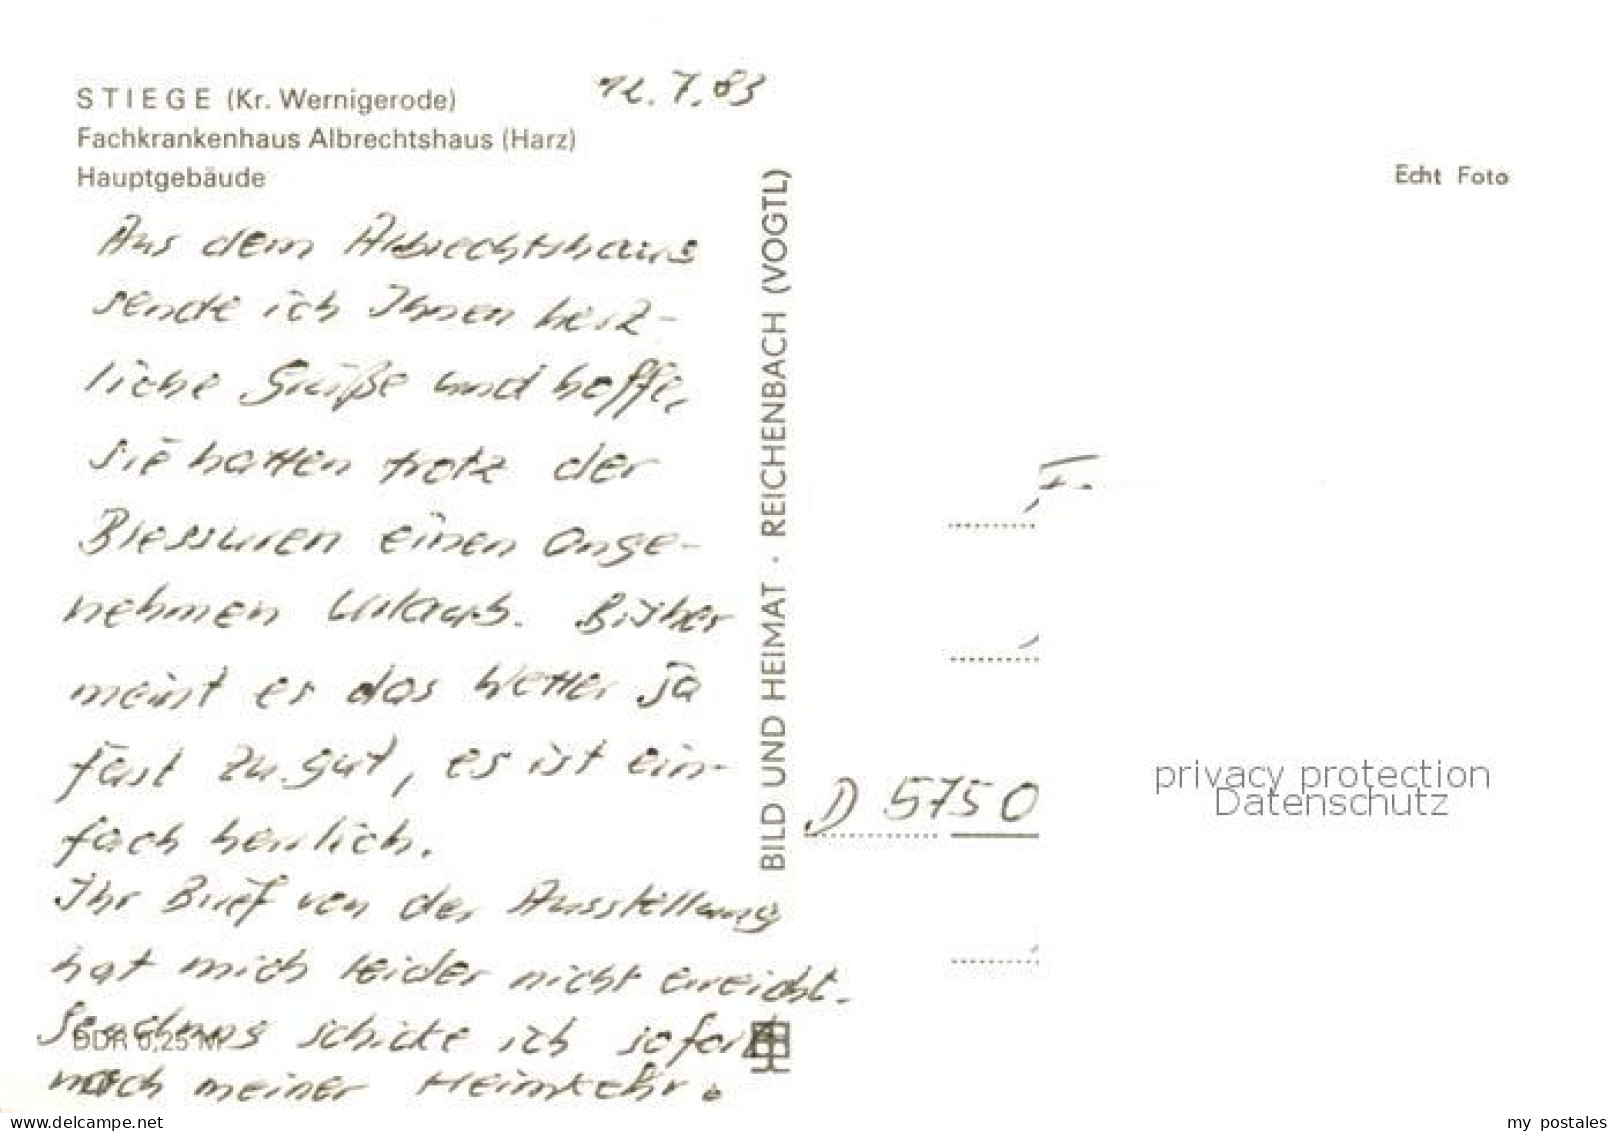 STIEGE (Kr. Wernigerode)
Fachkrankenhaus Albrechtshaus (Harz)
Hauptgebäude
12.7.83
Echt Foto
Aus dem Albrechtshaus
sende ich Ihnen herz-
liche Grüße und hoffe,
sie hatten trotz der
Blessuren einen ange-
nehmen Urlaub. Bisher
meint es das Wetter ja
fast zu gut, es ist ein-
fach herrlich.
Ihr Brief von der Ausstellung
hat mich leider nicht erreicht.
Sendung schicke ich sofort
nach meiner Heimkehr.
DDR 0,25 M
BILD UND HEIMAT · REICHENBACH (VOGTL)
F.
D 5750
privacy protection
Datenschutz
delcampe.net
my_postales